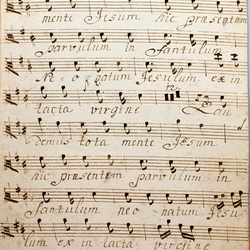 mente Jesum hic præsentem
parvulum in fantulum
Neo gatum Jesulum ex in
tacta virgine Lau
demus tota mente Jesum
hic præsentem parvulum in
fantulum neo natum Jesu
lum ex in tacta virgine